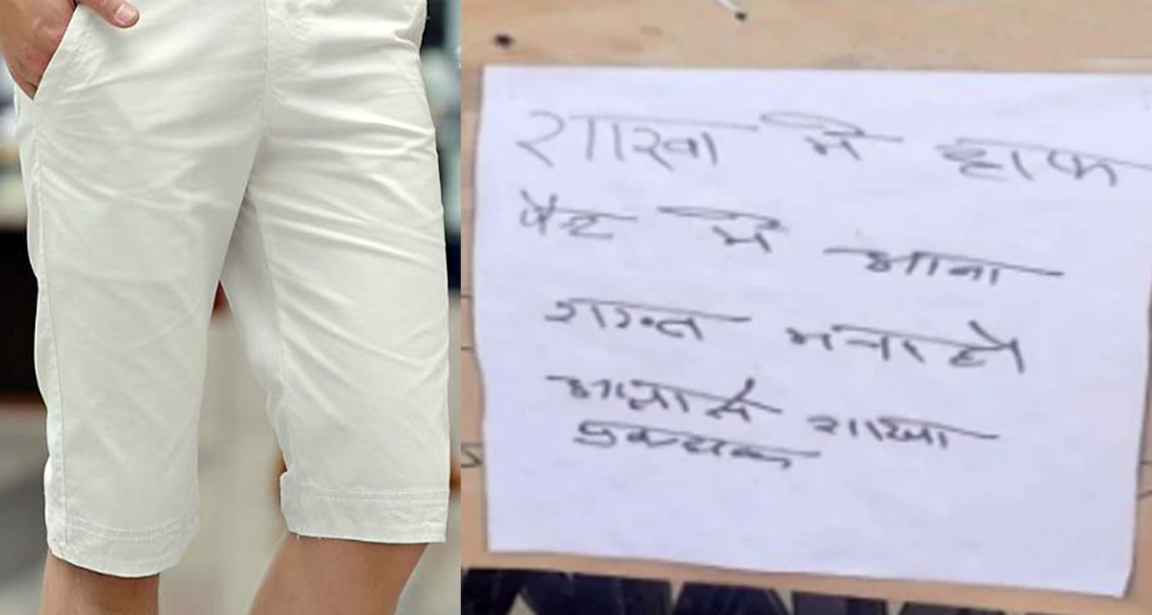 शाखा मे हाफ
पैन्ट मे आना
शख्त मना है
आज्ञा से शाखा
प्रबन्धक